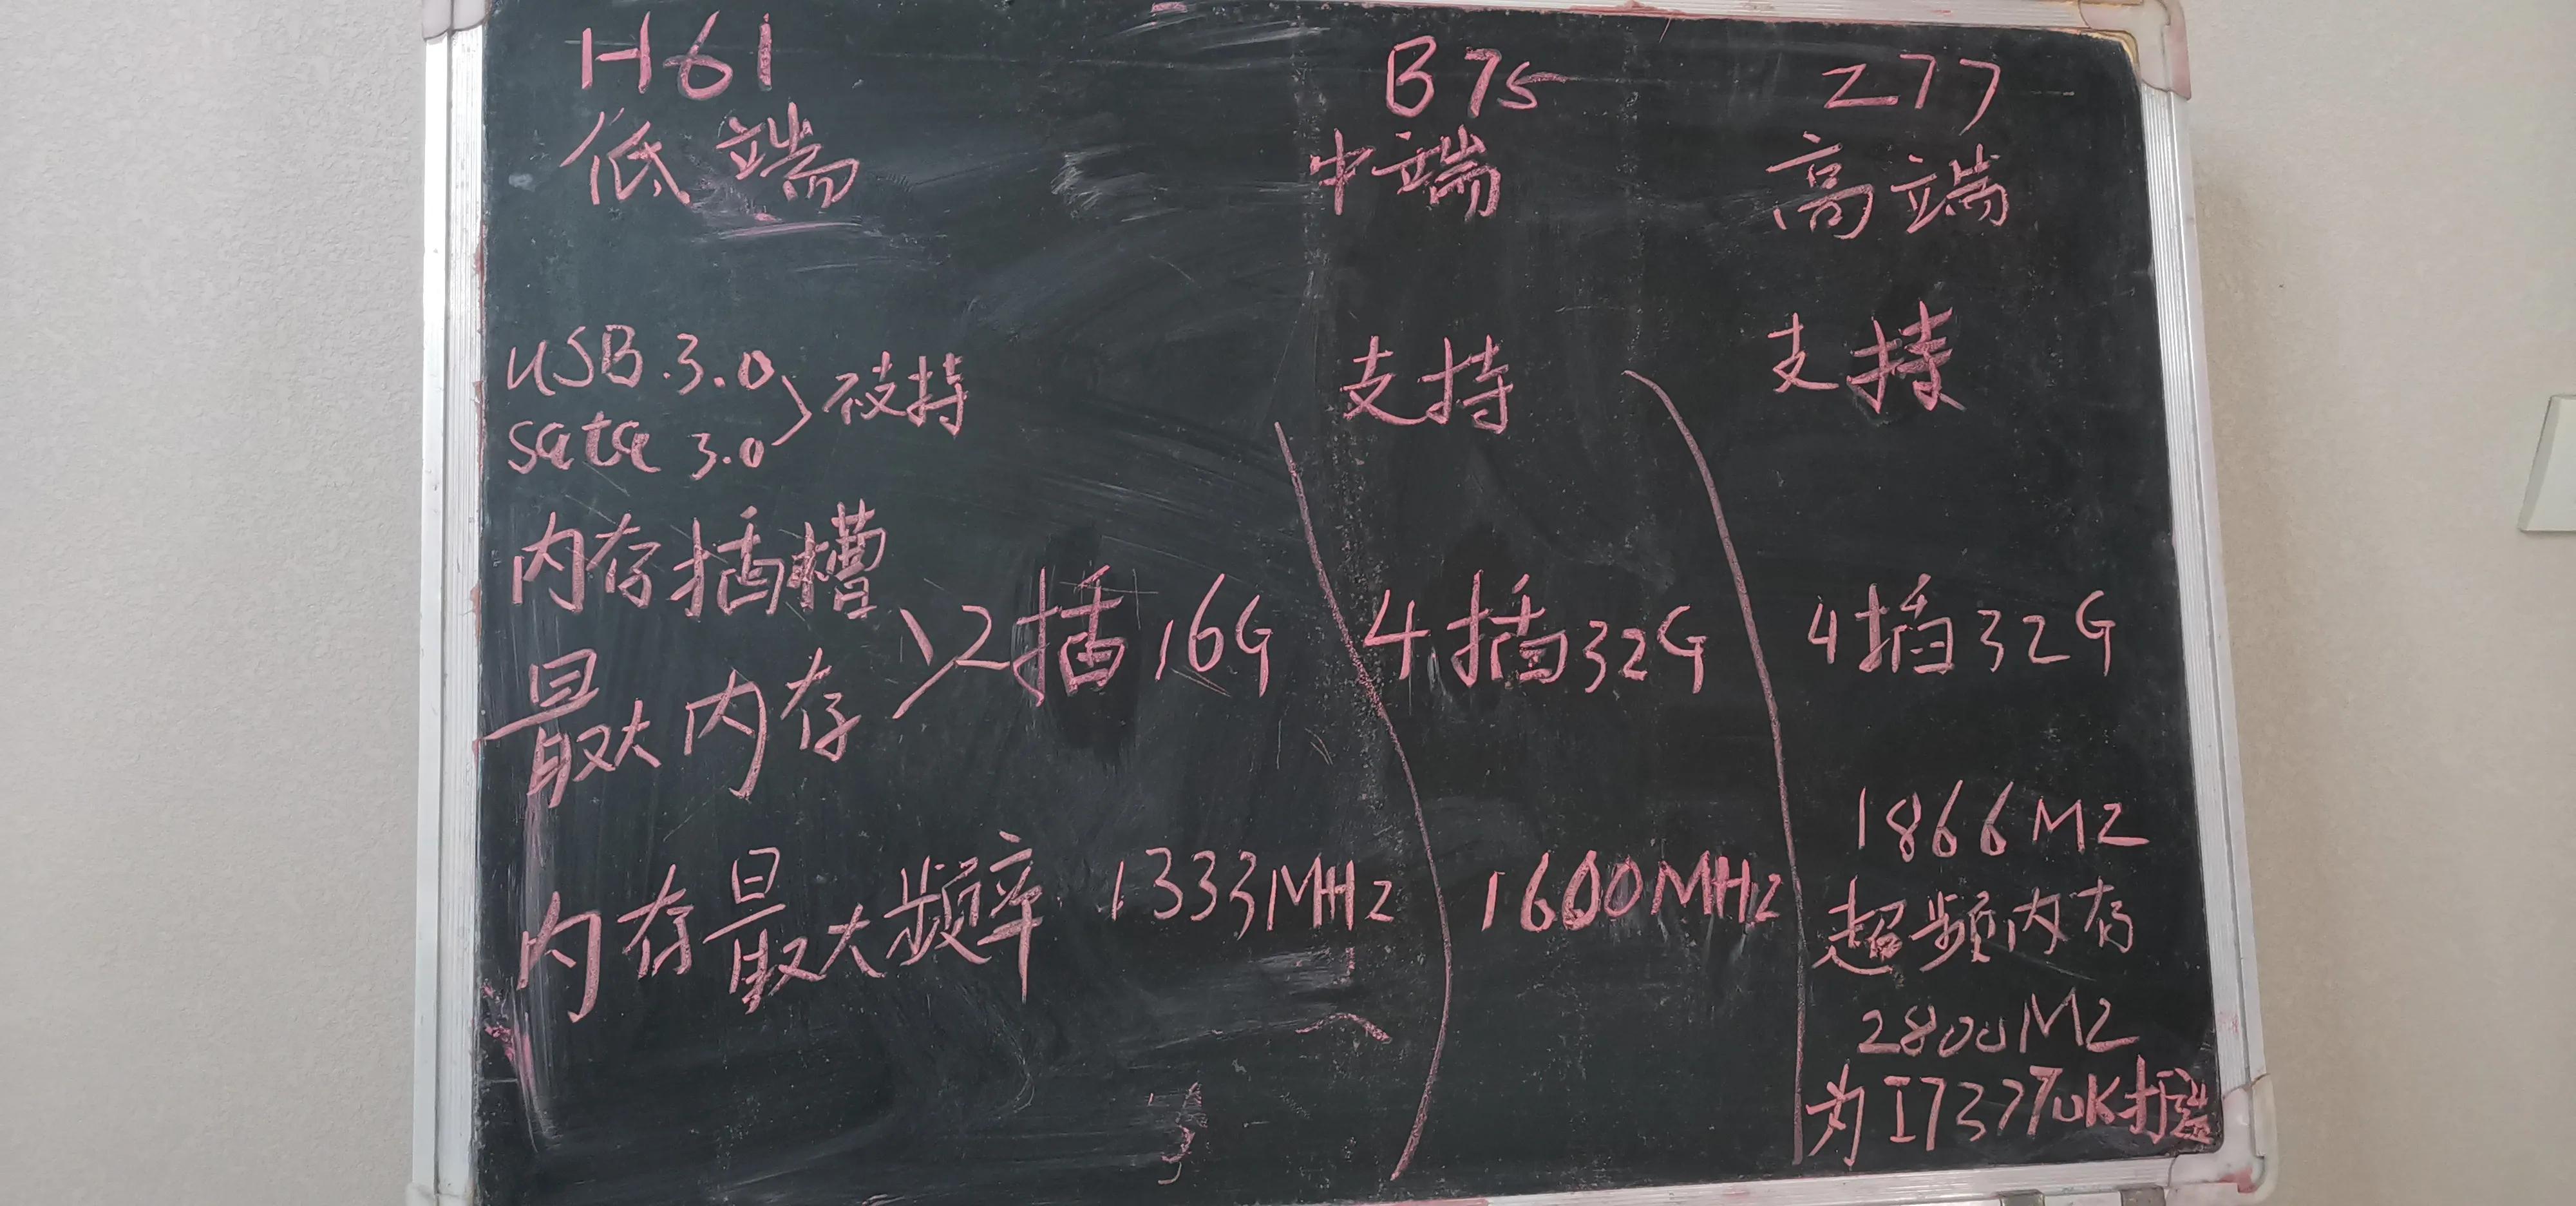 H61 B75 Z77
低端 中端 高端
USB.3.0
sata 3.0
不支持 支持 支持
内存插槽
最大内存
2插16G 4插32G 4插32G
内存最大频率 1333MHz 1600MHz 1866MZ
超频内存
2800MZ
为I73770K打造